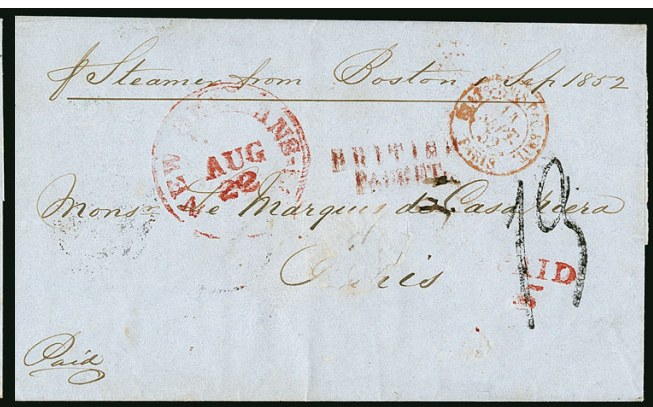 pr Steamer from Boston Sep 1852
NEW ORLEANS
AUG
22
BRITISH
PACKET.
Monsr Le Marquis de Casa Riera
Paris
13
PAID
5
Paid